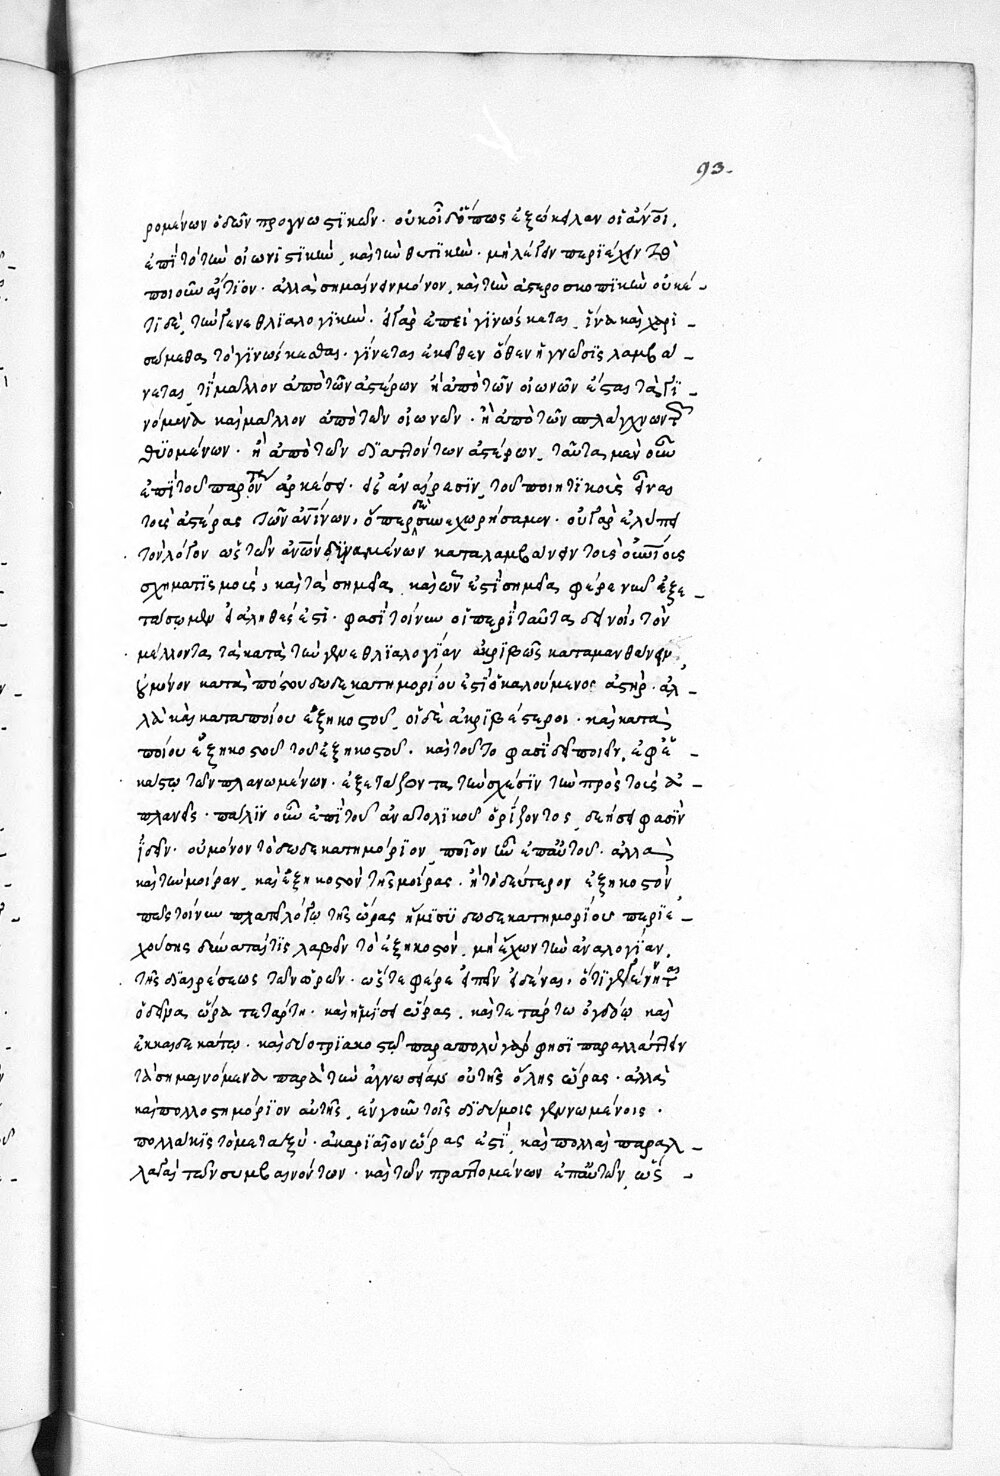 93.
ρομένων ὁδῶν προγνωστικῶν. οὐκ οἶδ᾽ ὅπως ἐξώκειλαν οἱ ἄνοι.
ἐπὶ τὸ τὴν οἰωνιστικὴν, καὶ τὴν θυτικὴν. μὴ λέγειν περιέχειν τὸ
ποιοῦν αἴτιον. ἀλλὰ σημαίνειν μόνον, καὶ τὴν ἀστεροσκοπικὴν οὐκέ-
τι δὲ, τὴν γενεθλιαλογικὴν. εἰ γὰρ ἐπεὶ γινώσκεται, ἵνα καὶ χαρι
σώμεθα τὸ γινώσκεσθαι. γίνεται ἐκεῖθεν ὅθεν ἡ γνῶσις λαμβά-
νεται, τί μᾶλλον ἀπὸ τῶν ἀστέρων ἢ ἀπὸ τῶν οἰωνῶν ἔσται τὰ γι-
νόμενα καὶ μᾶλλον ἀπὸ τῶν οἰωνῶν. ἢ ἀπὸ τῶν σπλάγχνων τ
θυομένων. ἢ ἀπὸ τῶν διαττόντων ἀστέρων, ταῦτα μὲν οὖν
ἐπὶ τοῦ παρόντος ἀρκέσει. εἰς ἀναίρεσιν, τοῦ ποιητικοὺς εἶναι
τοὺς ἀστέρας τῶν ἀνίνων, ὅπερ δὲ συνεχωρήσαμεν. οὐ γὰρ ἐλύπει
τὸν λόγον ὡς τῶν ἀνῶν δυναμένων καταλαμβάνειν τοὺς οὐνίους
σχηματισμοὺς, καὶ τὰ σημεῖα, καὶ ὧν ἐστὶ σημεῖα φέρε νῦν ἐξε-
τάσωμεν εἰ ἀληθές ἐστι. φασὶ τοίνυν οἱ περὶ ταῦτα δεινοί, τὸν
μέλλοντα τὰ κατὰ τὴν γενεθλιαλογίαν ἀκριβῶς καταμανθάνειν,
οὐ μόνον κατὰ πόσου δωδεκατημορίου ἐστὶ ὁ καλούμενος ἀστὴρ. ἀλ-
λὰ καὶ κατὰ ποίου ἑξηκοστοῦ, οἱ δὲ ἀκριβέστεροι. καὶ κατὰ
ποίου ἑξηκοστοῦ τοῦ ἑξηκοστοῦ. καὶ τοῦτο φασὶ δεῖ ποιεῖν, ἐφ᾽ ἑ-
κάστῳ τῶν πλανωμένων. ἐξετάζοντα τὴν σχέσιν τὴν πρὸς τοὺς ἀ-
πλανεῖς. πάλιν οὖν ἐπὶ τοῦ ἀνατολικοῦ ὁρίζοντος, δεήσει φασὶν
ἰδεῖν. οὐ μόνον τὸ δωδεκατημόριον, ποῖον ἦν ἐπ᾽ αὐτοῦ. ἀλλὰ
καὶ τὴν μοῖραν, καὶ ἑξηκοστὸν τῆς μοίρας. ἢ τὸ δεύτερον ἑξηκοστὸν,
πῶς τοίνυν πλατεῖ λόγῳ τῆς ὥρας ἥμισυ δωδεκατημορίου περιε-
χούσης δύναταί τις λαβεῖν τὸ ἑξηκοστὸν, μὴ ἔχων τὴν ἀναλογίαν,
τῆς διαιρέσεως τῶν ὡρῶν. ὥστε φέρε εἰπεῖν εἰδέναι, ὅτι γεγένηται
ὁ δεῖνα ὥρα τετάρτῃ. καὶ ἡμίσει ὥρας, καὶ τετάρτῳ ὀγδόῳ καὶ
ἑκκαιδεκάτῳ. καὶ δυοτριακοστῷ παραπολὺ γάρ φησι παραλλάττειν
τὰ σημαινόμενα παρὰ τὴν ἄγνωσίαν οὐ τῆς ὅλης ὥρας. ἀλλὰ
καὶ πολλοστημόριον αὐτῆς, ἐν γοῦν τοῖς διδύμοις γεννωμένοις.
πολλάκις τὸ μεταξὺ. ἀκαριαῖον ὥρας ἐστὶ, καὶ πολλαὶ παραλ-
λαγαὶ τῶν συμβαινόντων. καὶ τῶν πραττομένων ἐπ᾽ αὐτῶν, ὥς-